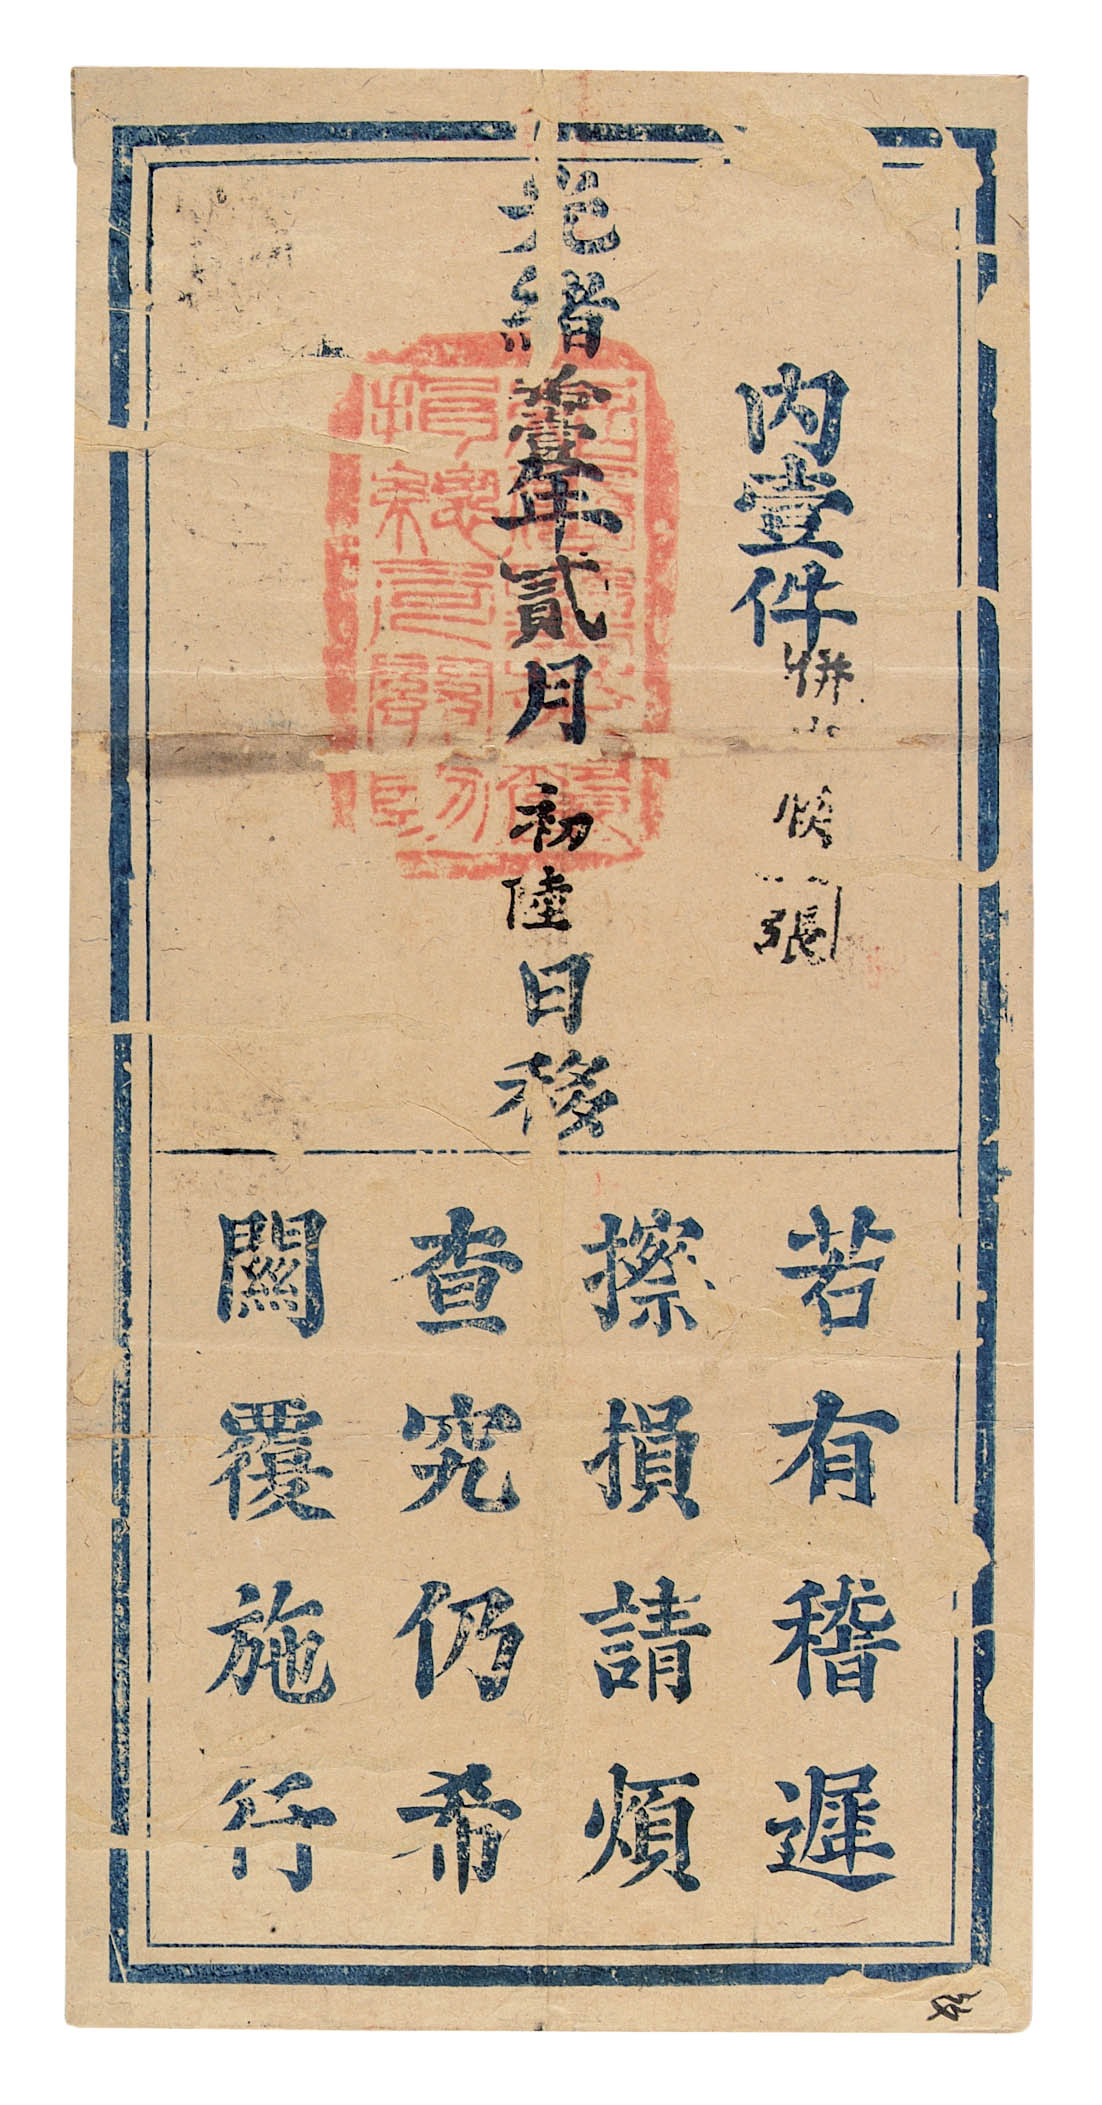 內壹件
張
光緒拾壹年貳月初陸日移
若有稽遲
擦損請煩
查究仍希
關覆施行